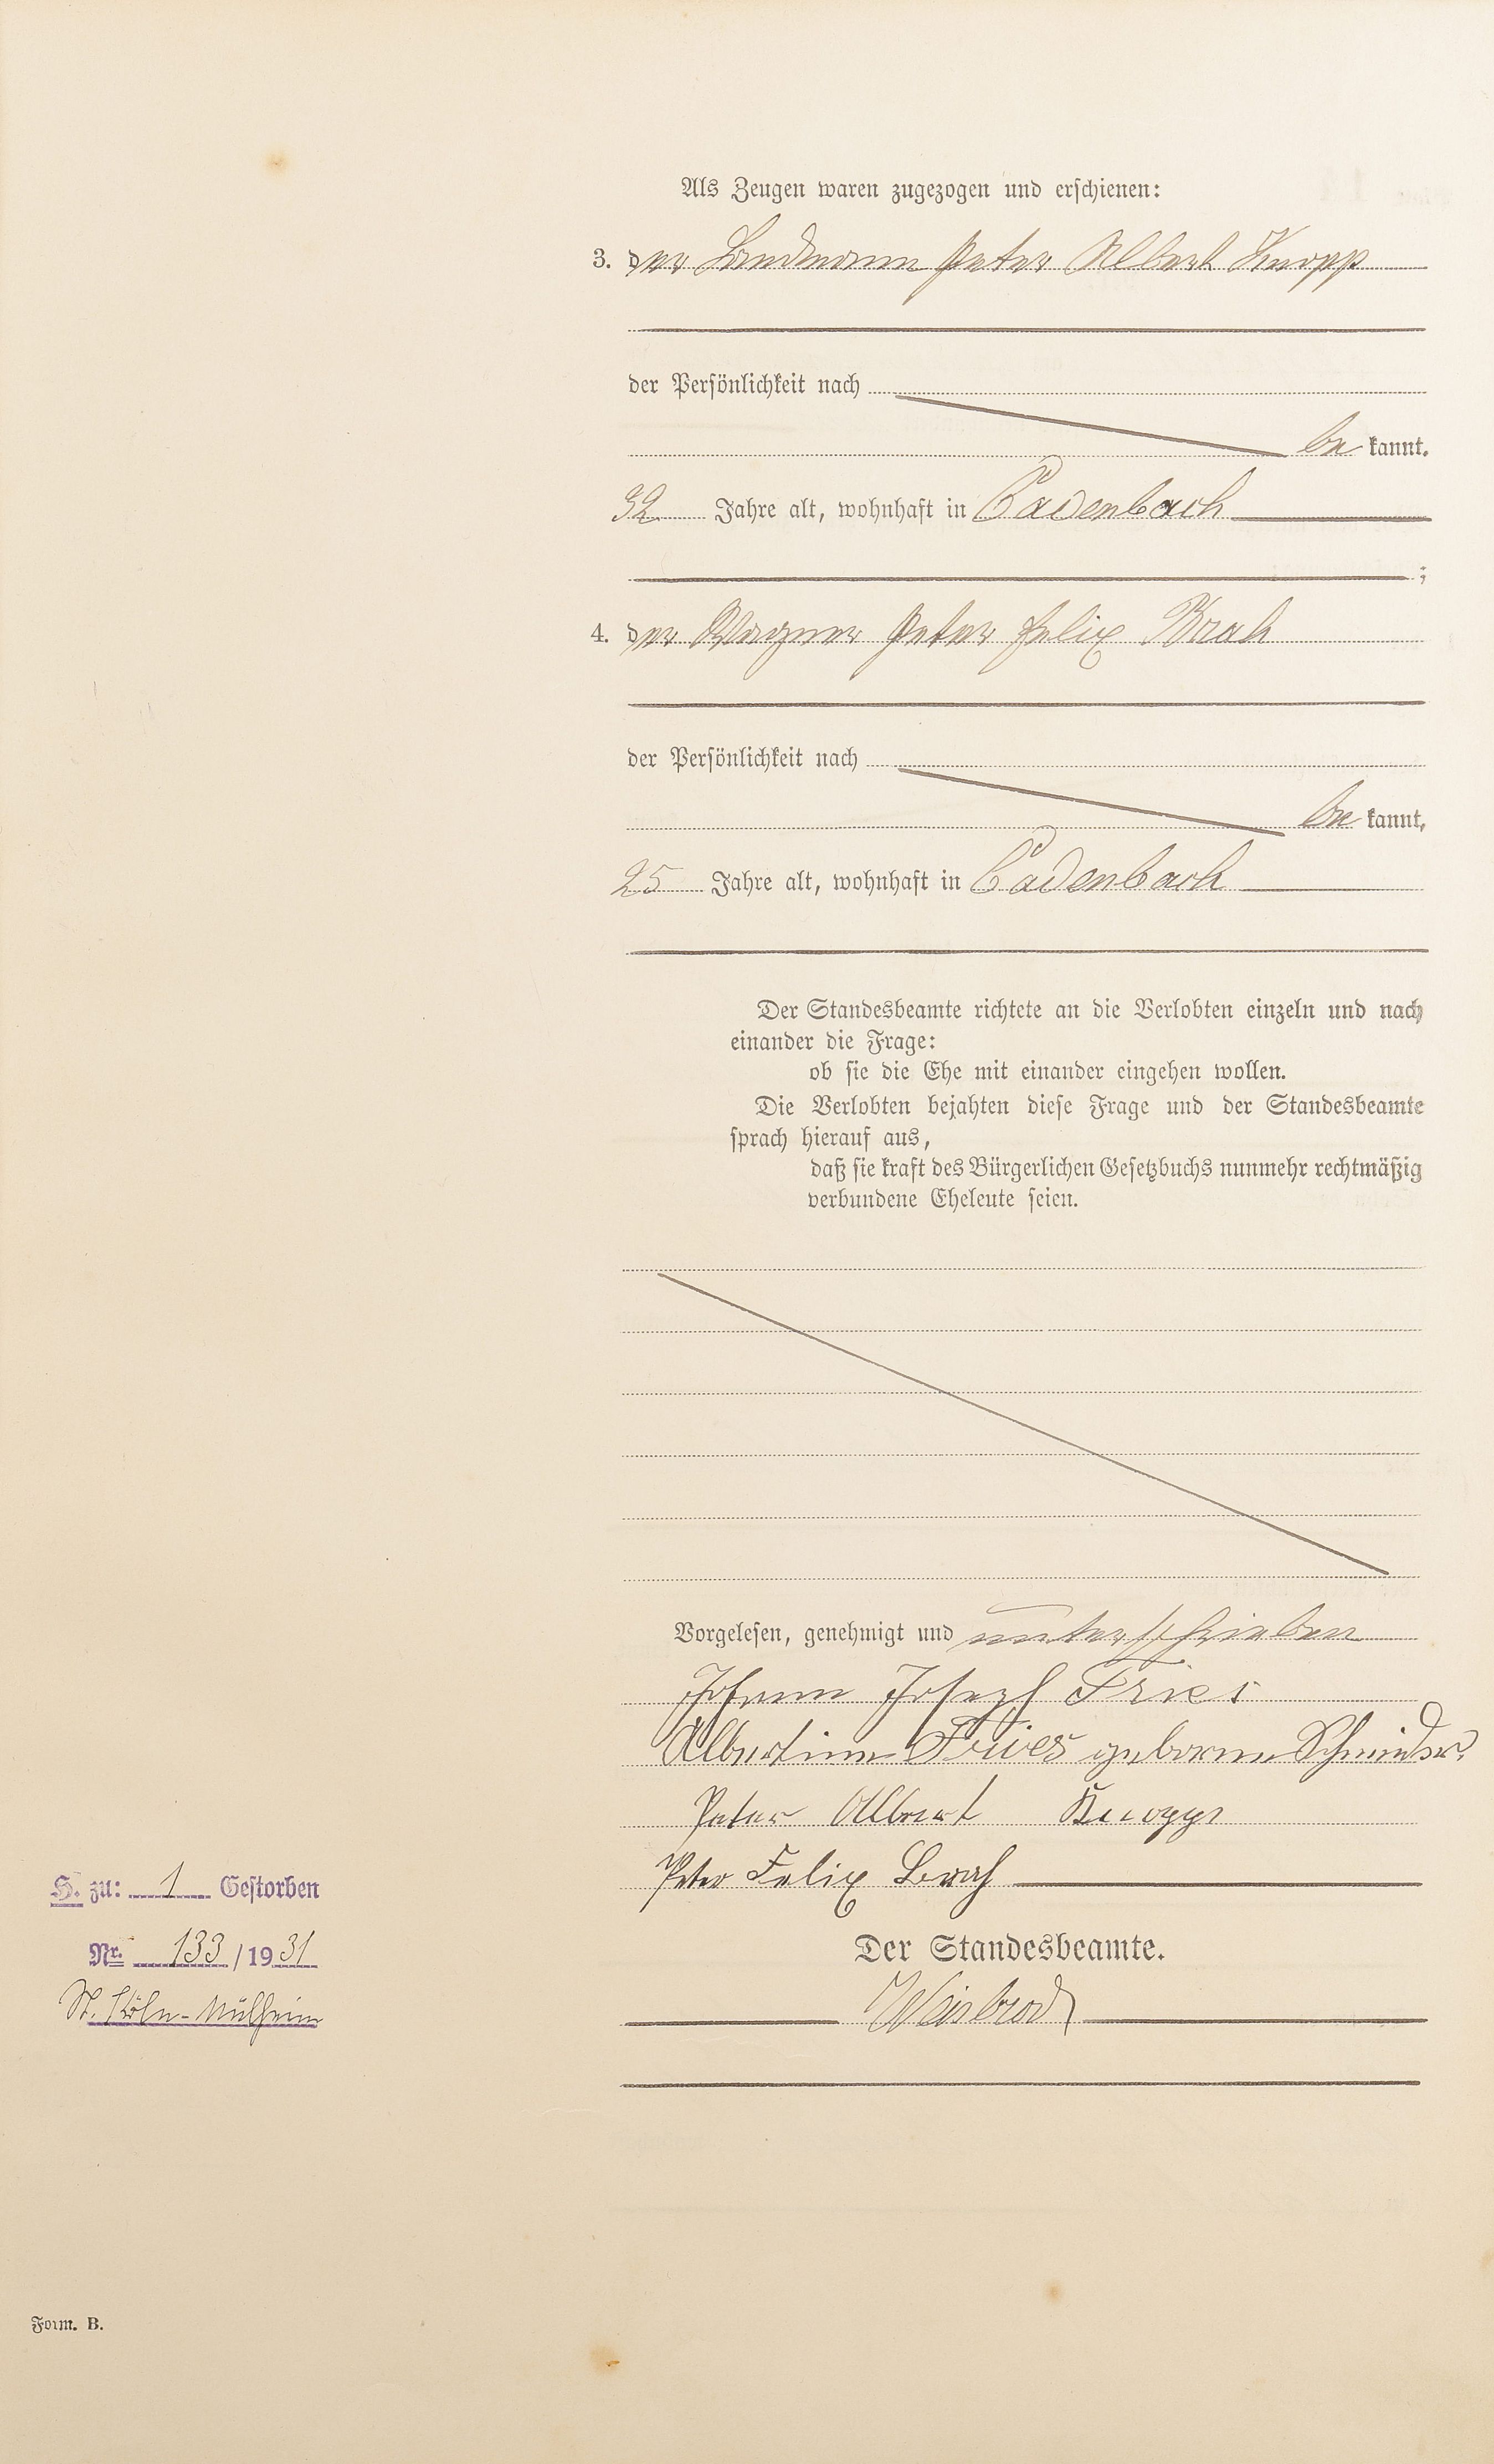 Als Zeugen waren zugezogen und erschienen:
3. der Landmann Peter Albert Knopp
der Persönlichkeit nach
be kannt.
32 Jahre alt, wohnhaft in Cadenbach
;
4. der Wagner Peter Felix Brah
der Persönlichkeit nach
be kannt,
25 Jahre alt, wohnhaft in Cadenbach
Der Standesbeamte richtete an die Verlobten einzeln und nach
einander die Frage:
ob sie die Ehe mit einander eingehen wollen.
Die Verlobten bejahten diese Frage und der Standesbeamte
sprach hierauf aus,
daß sie kraft des Bürgerlichen Gesetzbuchs nunmehr rechtmäßig
verbundene Eheleute seien.
Vorgelesen, genehmigt und unterschrieben
Johann Joseph Fries
Albertine Fries geborne Schneider.
Peter Albert Knopp
Peter Felix Brah
H. zu: 1 Gestorben
Der Standesbeamte.
Nr. 133/1931
Weisbrod
St. Köln-Mülheim
Form. B.